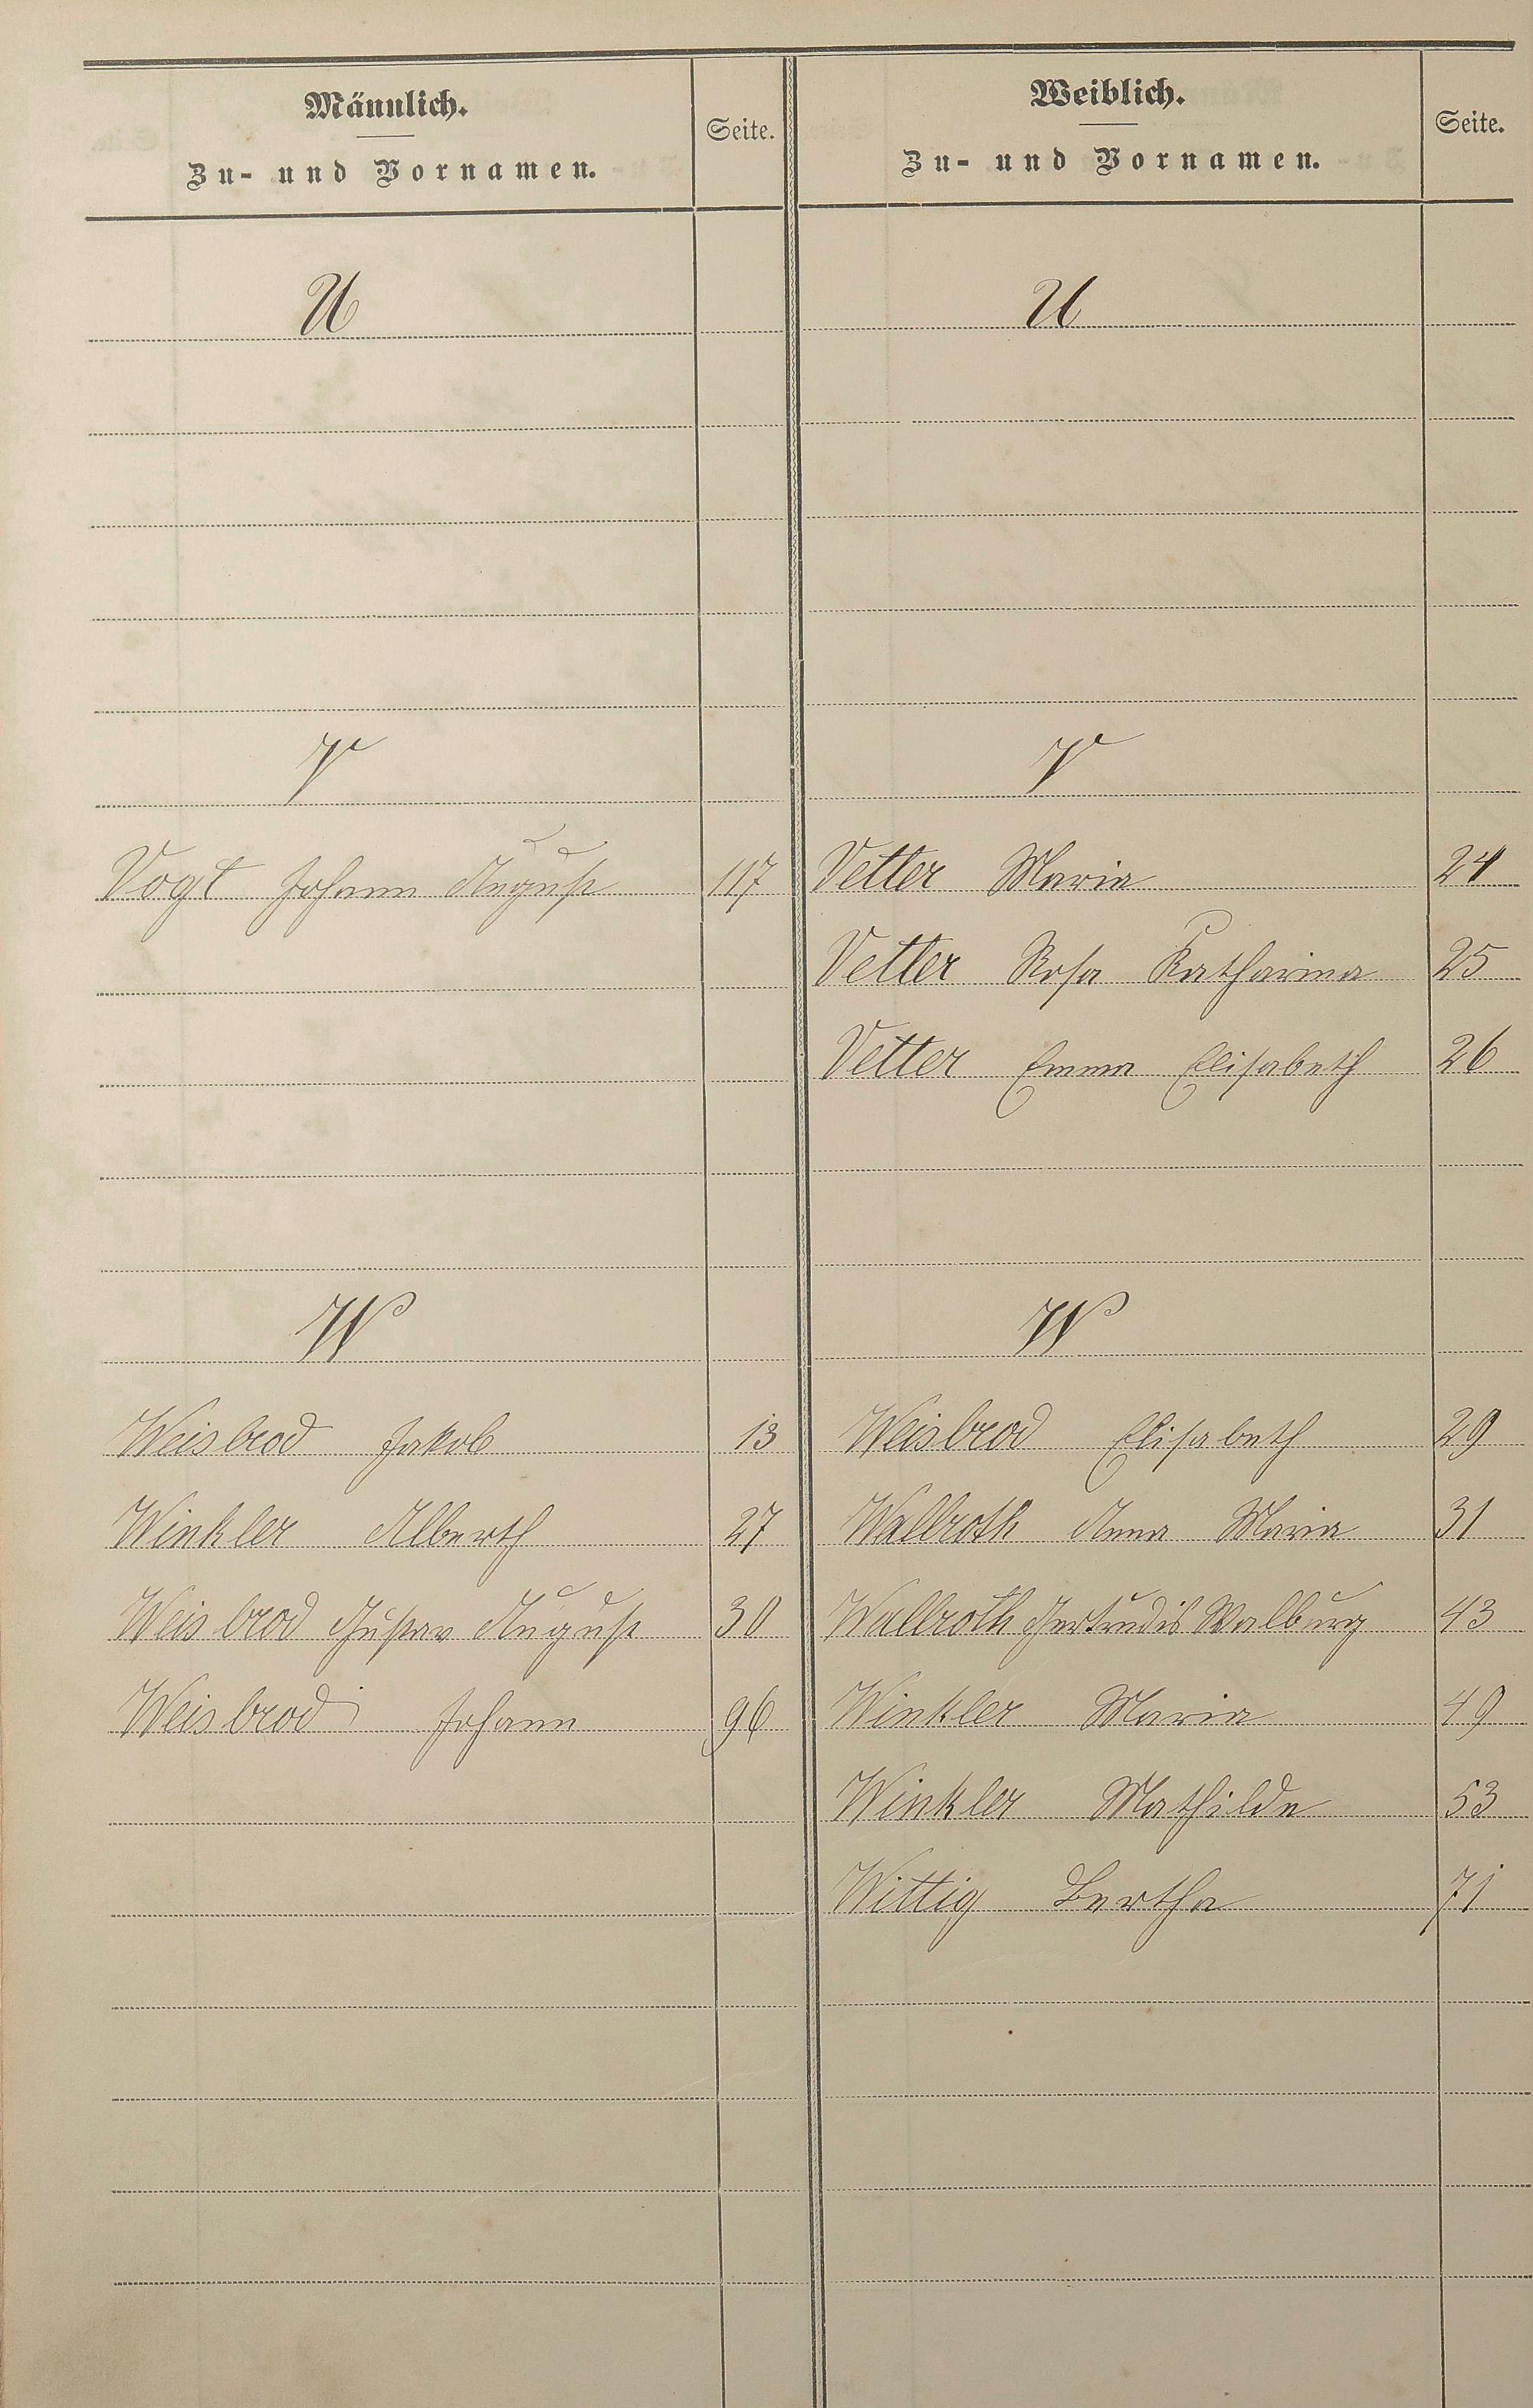 Männlich. Seite. Weiblich. Seite.
Zu- und Vornamen. Zu- und Vornamen.
U U
V V
Vogt Johann August 117 Vetter Maria 24
Vetter Rosa Katharina 25
Vetter Emma Elisabeth 26
W W
Weisbrod Jakob 13 Weisbrod Elisabeth 29
Winkler Alberth 27 Wallroth Anna Maria 31
Weisbrod Gustav August 30 Wallroth Gertrudis Walburg 43
Weisbrod Johann 96 Winkler Maria 49
Winkler Mathilde 53
Wittig Bertha 71